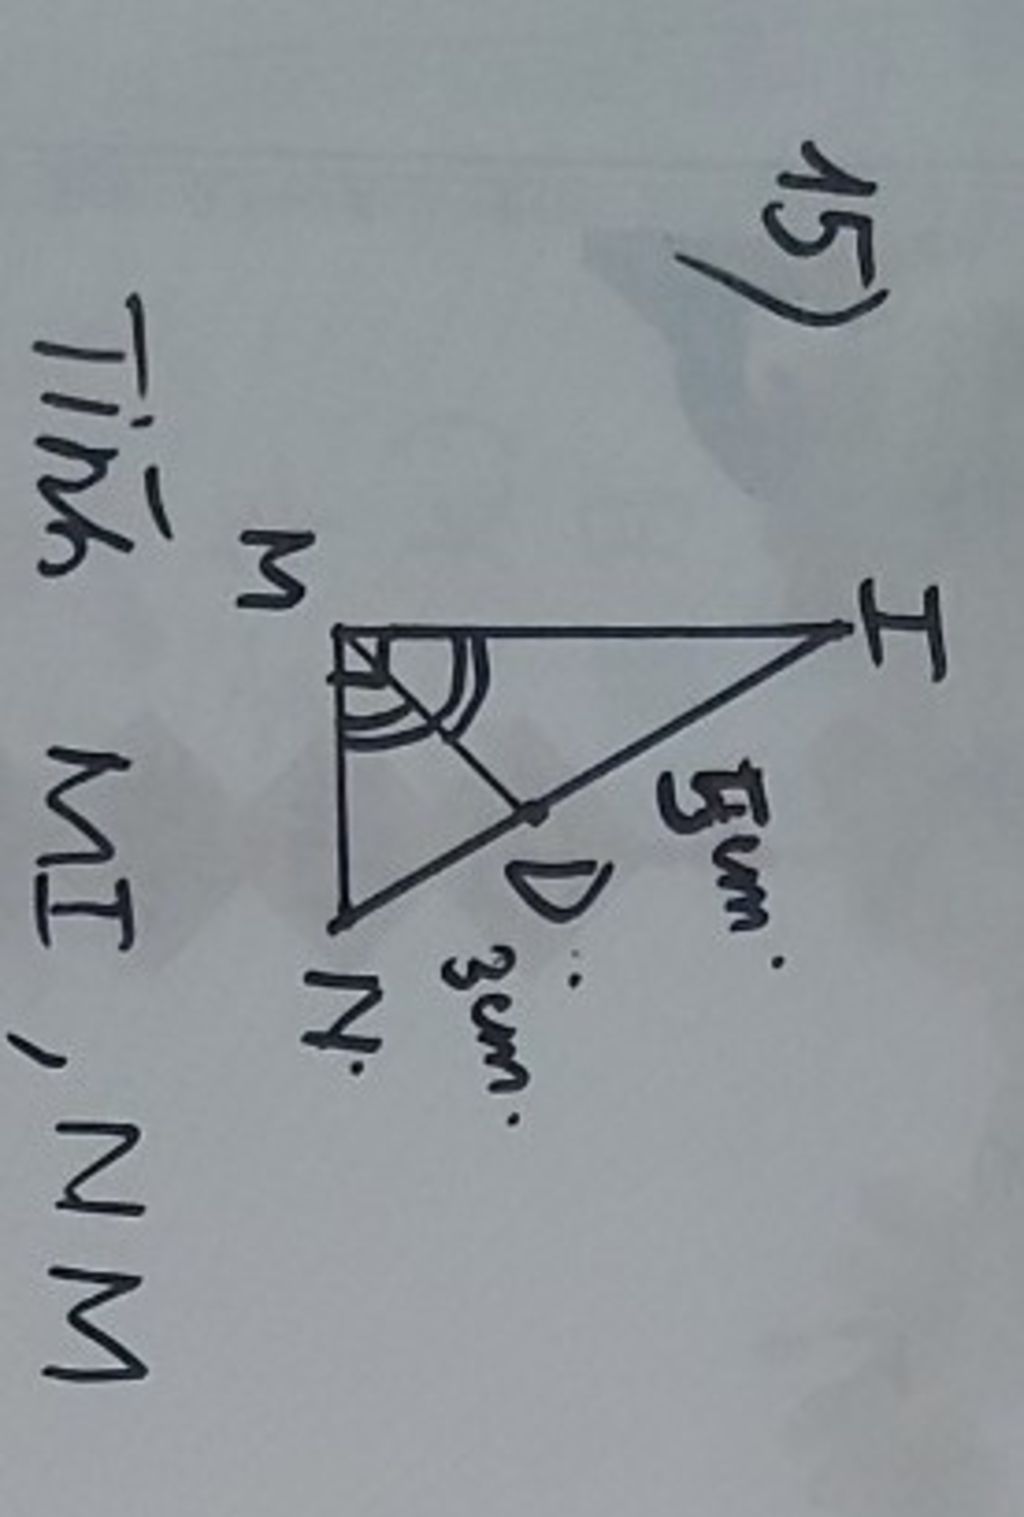 15)
I
5cm.
D
3cm.
M
N.
Tính MI, NM